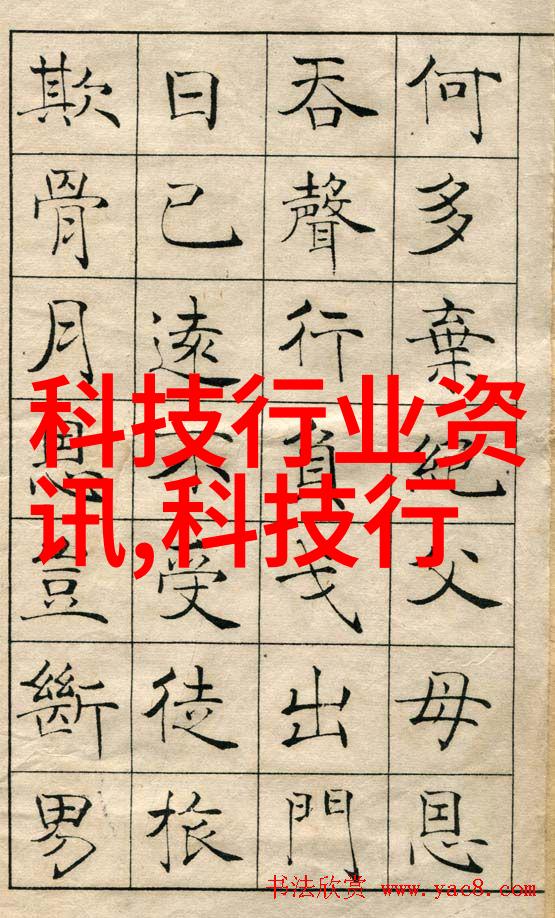 何多棄絕父母恩
吞聲行負戈出門
日已遠不受徒旅
欺骨月恩豈斷男
科技行业资
讯,科技行
书法欣赏 www.yac8.com